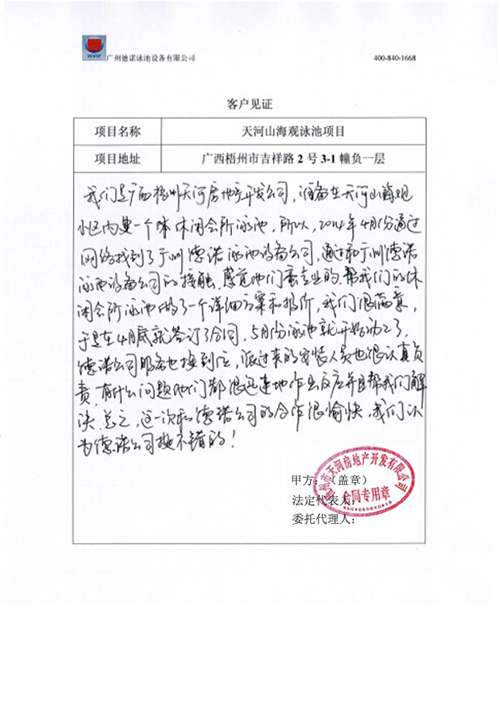 广州德诺泳池设备有限公司 400-840-1668
客户见证
项目名称 天河山海观泳池项目
项目地址 广西梧州市吉祥路 2 号 3-1 幢负一层
我们是广西梧州天河房地产开发公司，准备在天河山海观
小区内建一个休闲会所泳池，所以，2014年4月份通过
网络找到了广州德诺泳池设备公司，通过和广州德诺
泳池设备公司的接触，感觉他们蛮专业的，帮我们的休
闲会所泳池做了一个详细方案和报价，我们很满意，
于是在4月底就签订了合同，5月份泳池就开始动工了，
德诺公司服务也挺到位，派过来的安装人员也很认真负
责，有什么问题他们都很迅速地作出反应并且帮我们解
决，总之，这一次和德诺公司的合作很愉快，我们认
为德诺公司挺不错的！
甲方：（盖章）
法定代表人：
委托代理人：
天河房地产开发有限公司
合同专用章